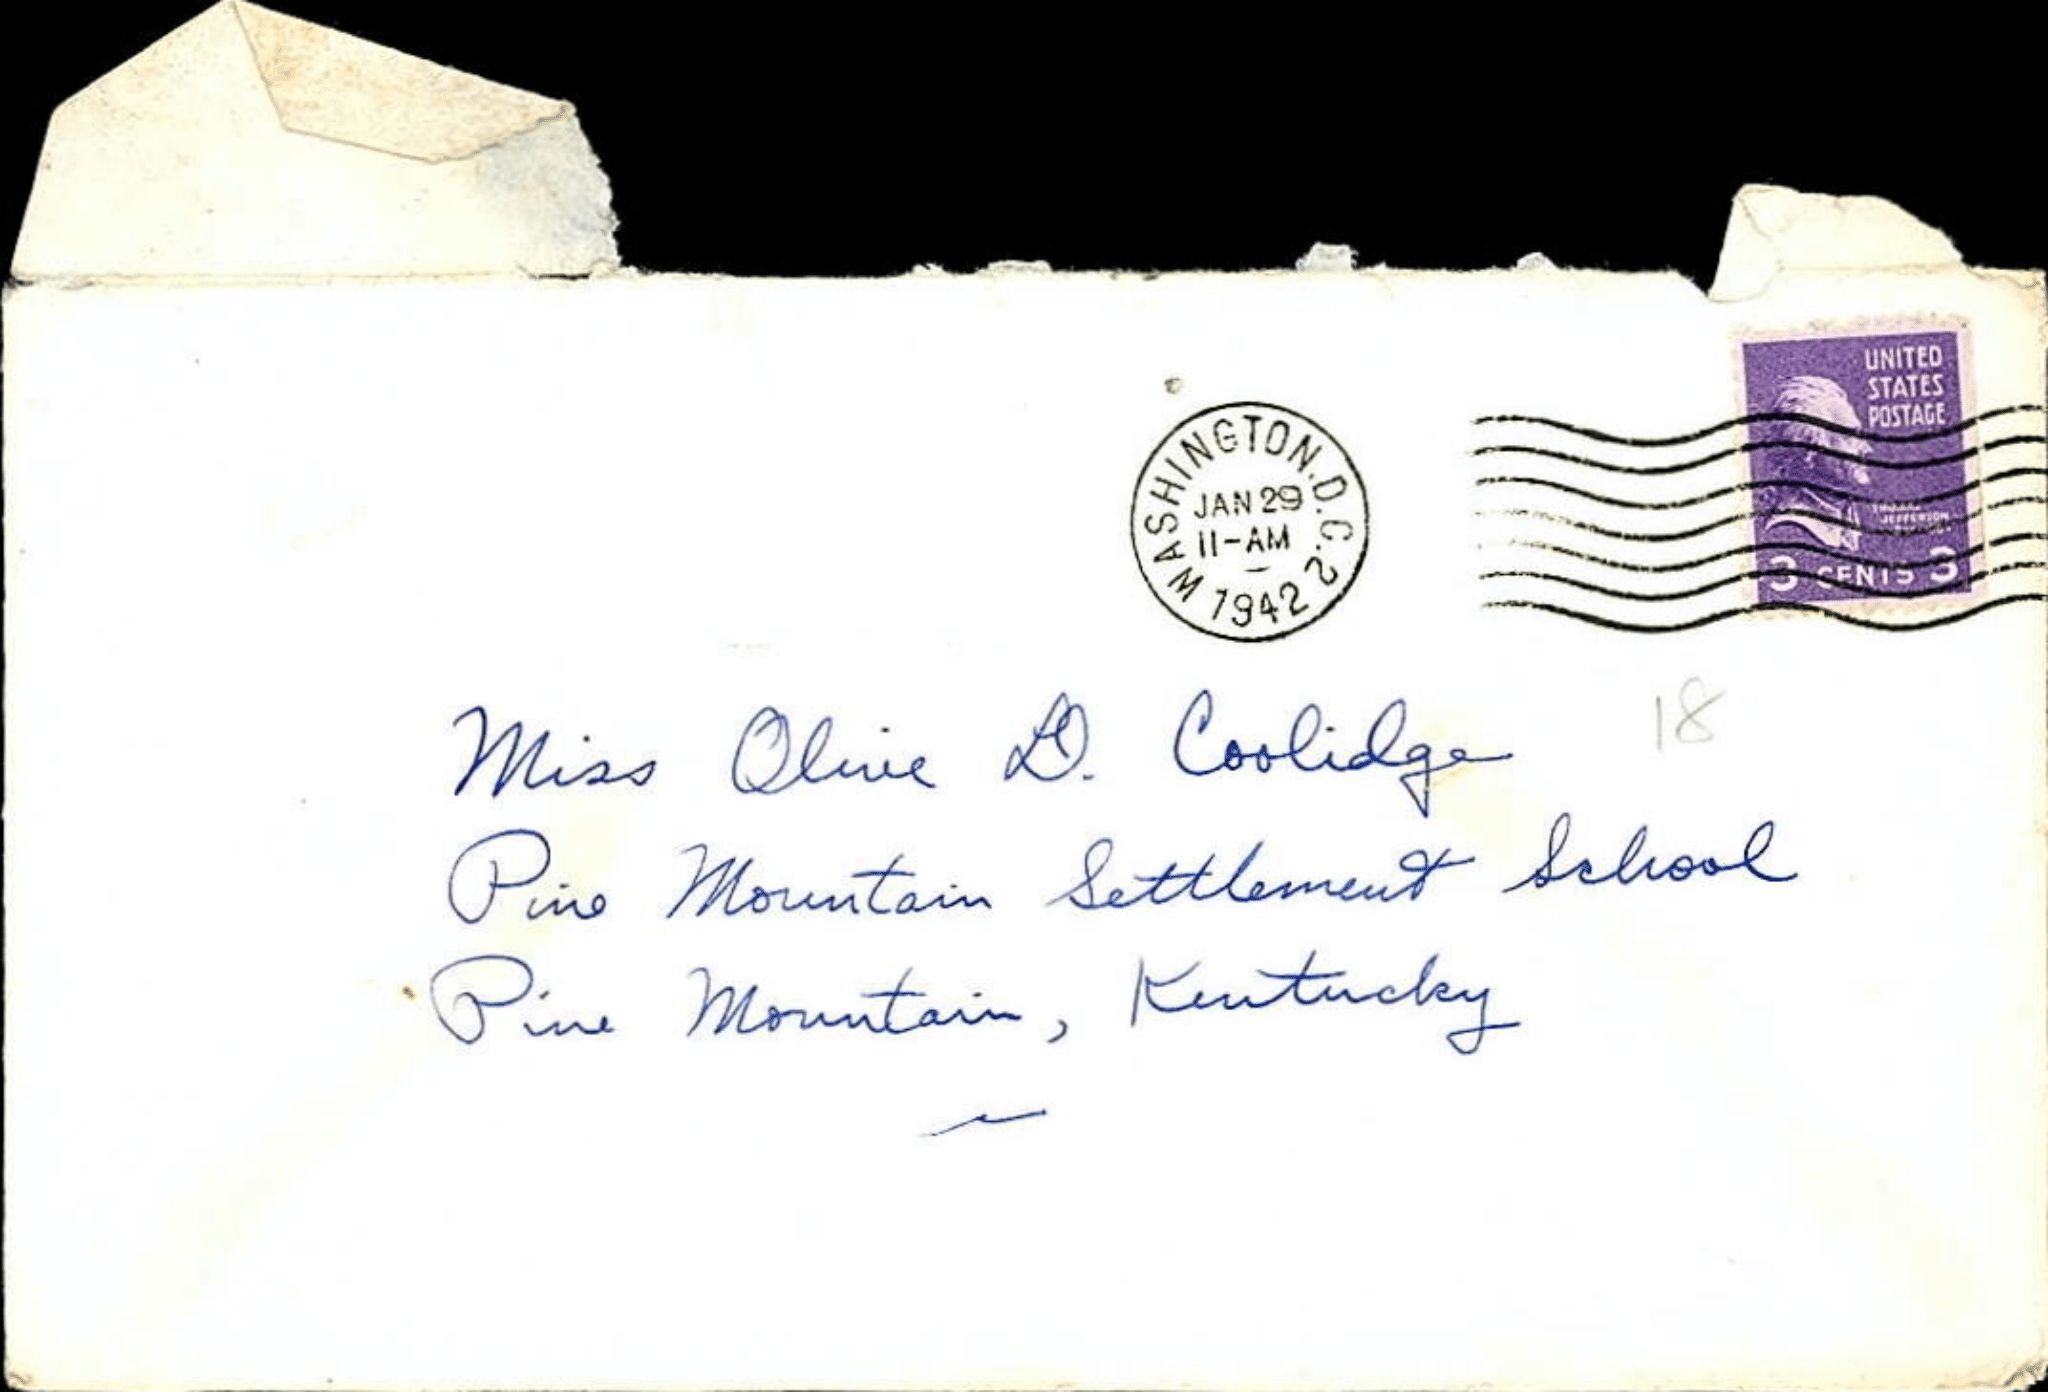 UNITED
STATES
POSTAGE
JEFFERSON
3 CENTS 3
WASHINGTON, D.C. 2
JAN 29
11-AM
1942
18
Miss Olive D. Coolidge
Pine Mountain Settlement School
Pine Mountain, Kentucky